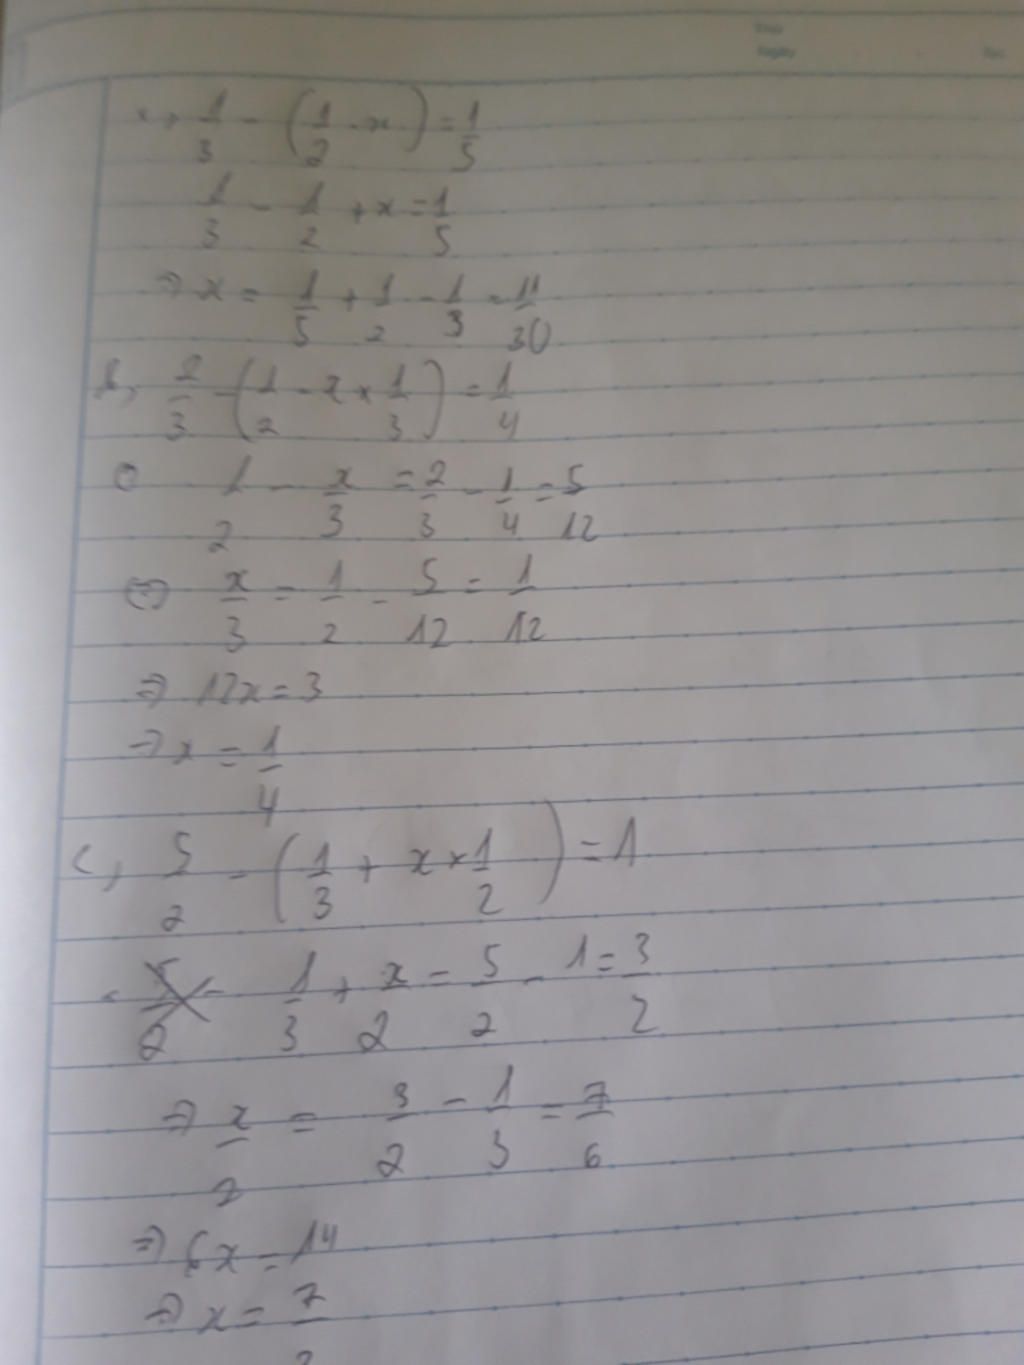 1/3 - (1/2 - x) = 1/5
1/3 - 1/2 + x = 1/5
⇒ x = 1/5 + 1/2 - 1/3 = 11/30
b, 2/3 - (1/2 - x × 1/3) = 1/4
1/2 - x/3 = 2/3 - 1/4 = 5/12
⇔ x/3 = 1/2 - 5/12 = 1/12
⇒ 12x = 3
⇒ x = 1/4
c, 5/2 - (1/3 + x × 1/2) = 1
1/3 + x/2 = 5/2 - 1 = 3/2
⇒ x/2 = 3/2 - 1/3 = 7/6
⇒ 6x = 14
⇒ x = 7/3